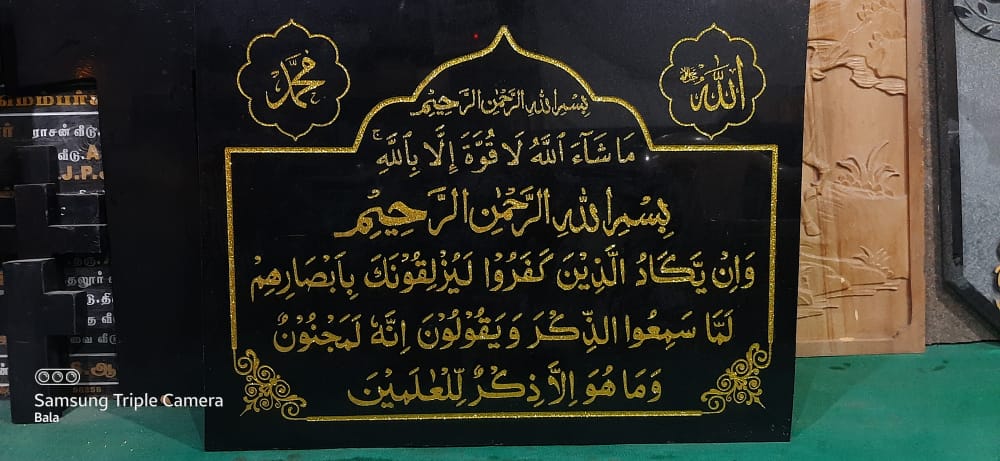 محمد
الله ﷻ
بِسْمِ اللهِ الرَّحْمٰنِ الرَّحِيْمِ
مَا شَآءَ ٱللَّهُ لَا قُوَّةَ إِلَّا بِٱللَّهِۚ
بِسْمِ اللهِ الرَّحْمٰنِ الرَّحِيْمِ
وَاِنْ يَّكَادُ الَّذِيْنَ كَفَرُوْا لَيُزْلِقُوْنَكَ بِاَبْصَارِهِمْ
لَمَّا سَمِعُوا الذِّكْرَ وَيَقُوْلُوْنَ اِنَّهٗ لَمَجْنُوْنٌ
وَمَا هُوَ اِلَّا ذِكْرٌ لِّلْعٰلَمِيْنَ
ராசன் வீடு,
வீடு, A
J.P.
Samsung Triple Camera
Bala